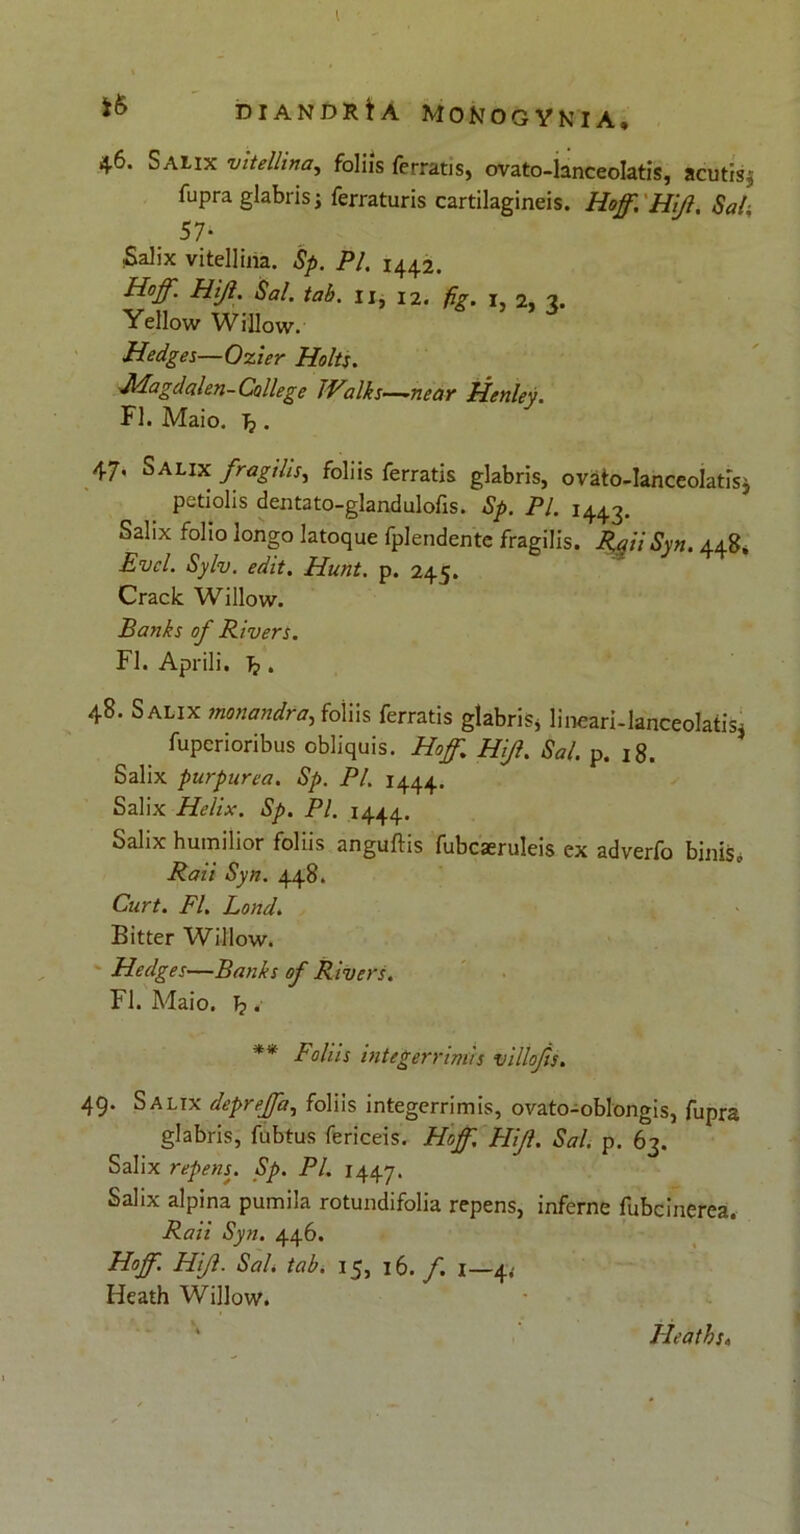 16 DIANDRIA MONOGYNIA.
46. SALIX vitellina, foliis ſerratis, ovato-lanceolatis, acutis;
ſupra glabris; ſerraturis cartilagineis. Hoff. Hiſt. Sal.
57.
Salix vitellina. Sp. Pl. 1442.
Hoff. Hiſt. Sal. tab. 11, 12. fig. 1, 2, 3.
Yellow Willow.
Hedges—Ozier Holts.
Magdalen-College Walks—near Henley.
Fl. Maio. ♄.
47. SALIX fragilis, foliis ſerratis glabris, ovato-lanceolatis;
petiolis dentato-glanduloſis. Sp. Pl. 1443.
Salix folio longo latoque ſplendente fragilis. Raii Syn. 448.
Evel. Sylv. edit. Hunt. p. 245.
Crack Willow.
Banks of Rivers.
Fl. Aprili. ♄.
48. SALIX monandra, foliis ſerratis glabris, lineari-lanceolatis,
ſuperioribus obliquis. Hoff. Hiſt. Sal. p. 18.
Salix purpurea. Sp. Pl. 1444.
Salix Helix. Sp. Pl. 1444.
Salix humilior foliis anguſtis ſubcæruleis ex adverſo binis.
Raii Syn. 448.
Curt. Fl. Lond.
Bitter Willow.
Hedges—Banks of Rivers.
Fl. Maio. ♄.
** Foliis integerrimis villoſis.
49. SALIX depreſſa, foliis integerrimis, ovato-oblongis, ſupra
glabris, ſubtus ſericeis. Hoff. Hiſt. Sal. p. 63.
Salix repens. Sp. Pl. 1447.
Salix alpina pumila rotundifolia repens, inferne ſubcinerea.
Raii Syn. 446.
Hoff. Hiſt. Sal. tab. 15, 16. f. 1—4.
Heath Willow.
Heaths.